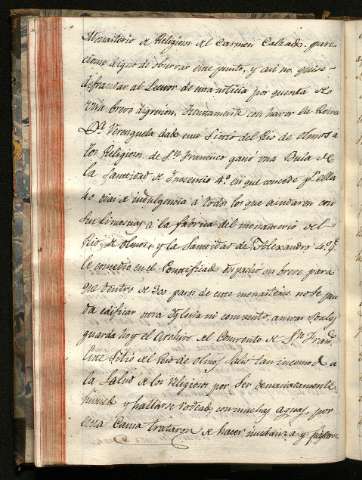 Monasterio de Religiosos del Carmen Calzado, pare
cióme digno de observar este punto, y así no quise
defraudar al Lector de esta noticia por cuenta de
esta breve digresion. Juntamente con haver la Reina
D.ª Verenguela dado este Sitio del Rio de Olmos a
los Religiosos de S.n Francisco ganó una Bula de
la Santidad de Inocencio 4.º en que concede
dias de indulgencia a todos los que ayudaren con
sus limosnas a la fabrica del monasterio del
Rio de Olmos, y la Santidad de Alexandro 4.º
le concedio en el Pontificado despacho un breve para
que dentro de 300 pasos de este monasterio no se pue
da edificar otra Iglesia ni convento, cuyas Bulas
guarda hoy el Archivo del Convento de S.n Fran
Este Sitio del Rio de Olmos salio tan incomodo a
la Salud de los Religiosos por ser demasiadamente
humeda y hallarse rodeado con muchas aguas, por
esta Causa trataron de hacer mudanza y pidieron